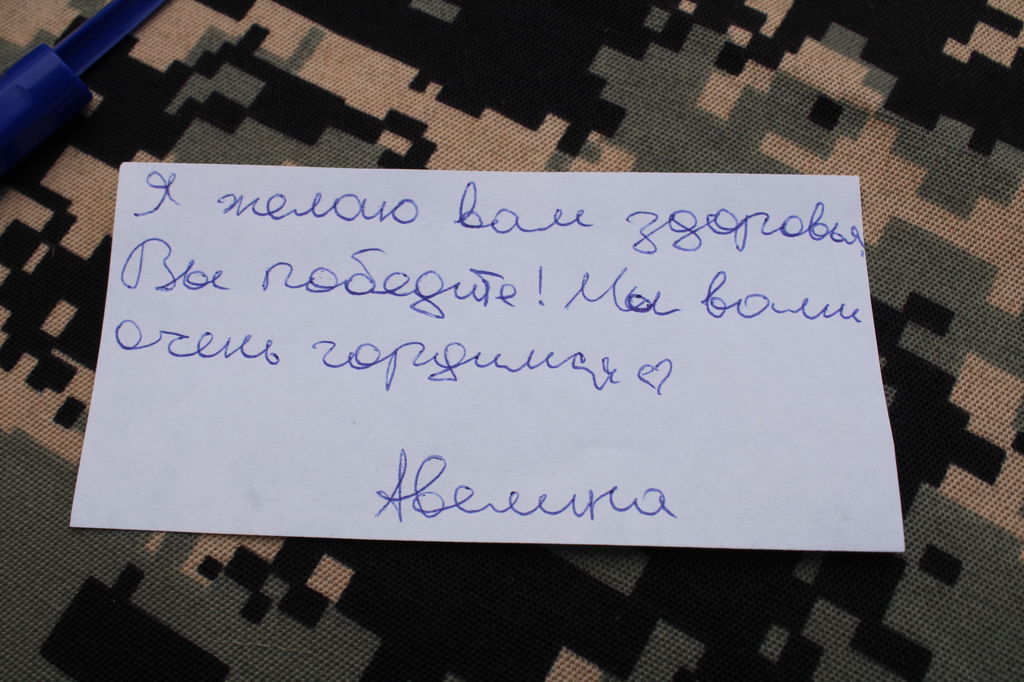 Я желаю вам здоровья,
Вы победите! Мы вами
очень гордимся♡
Авелина